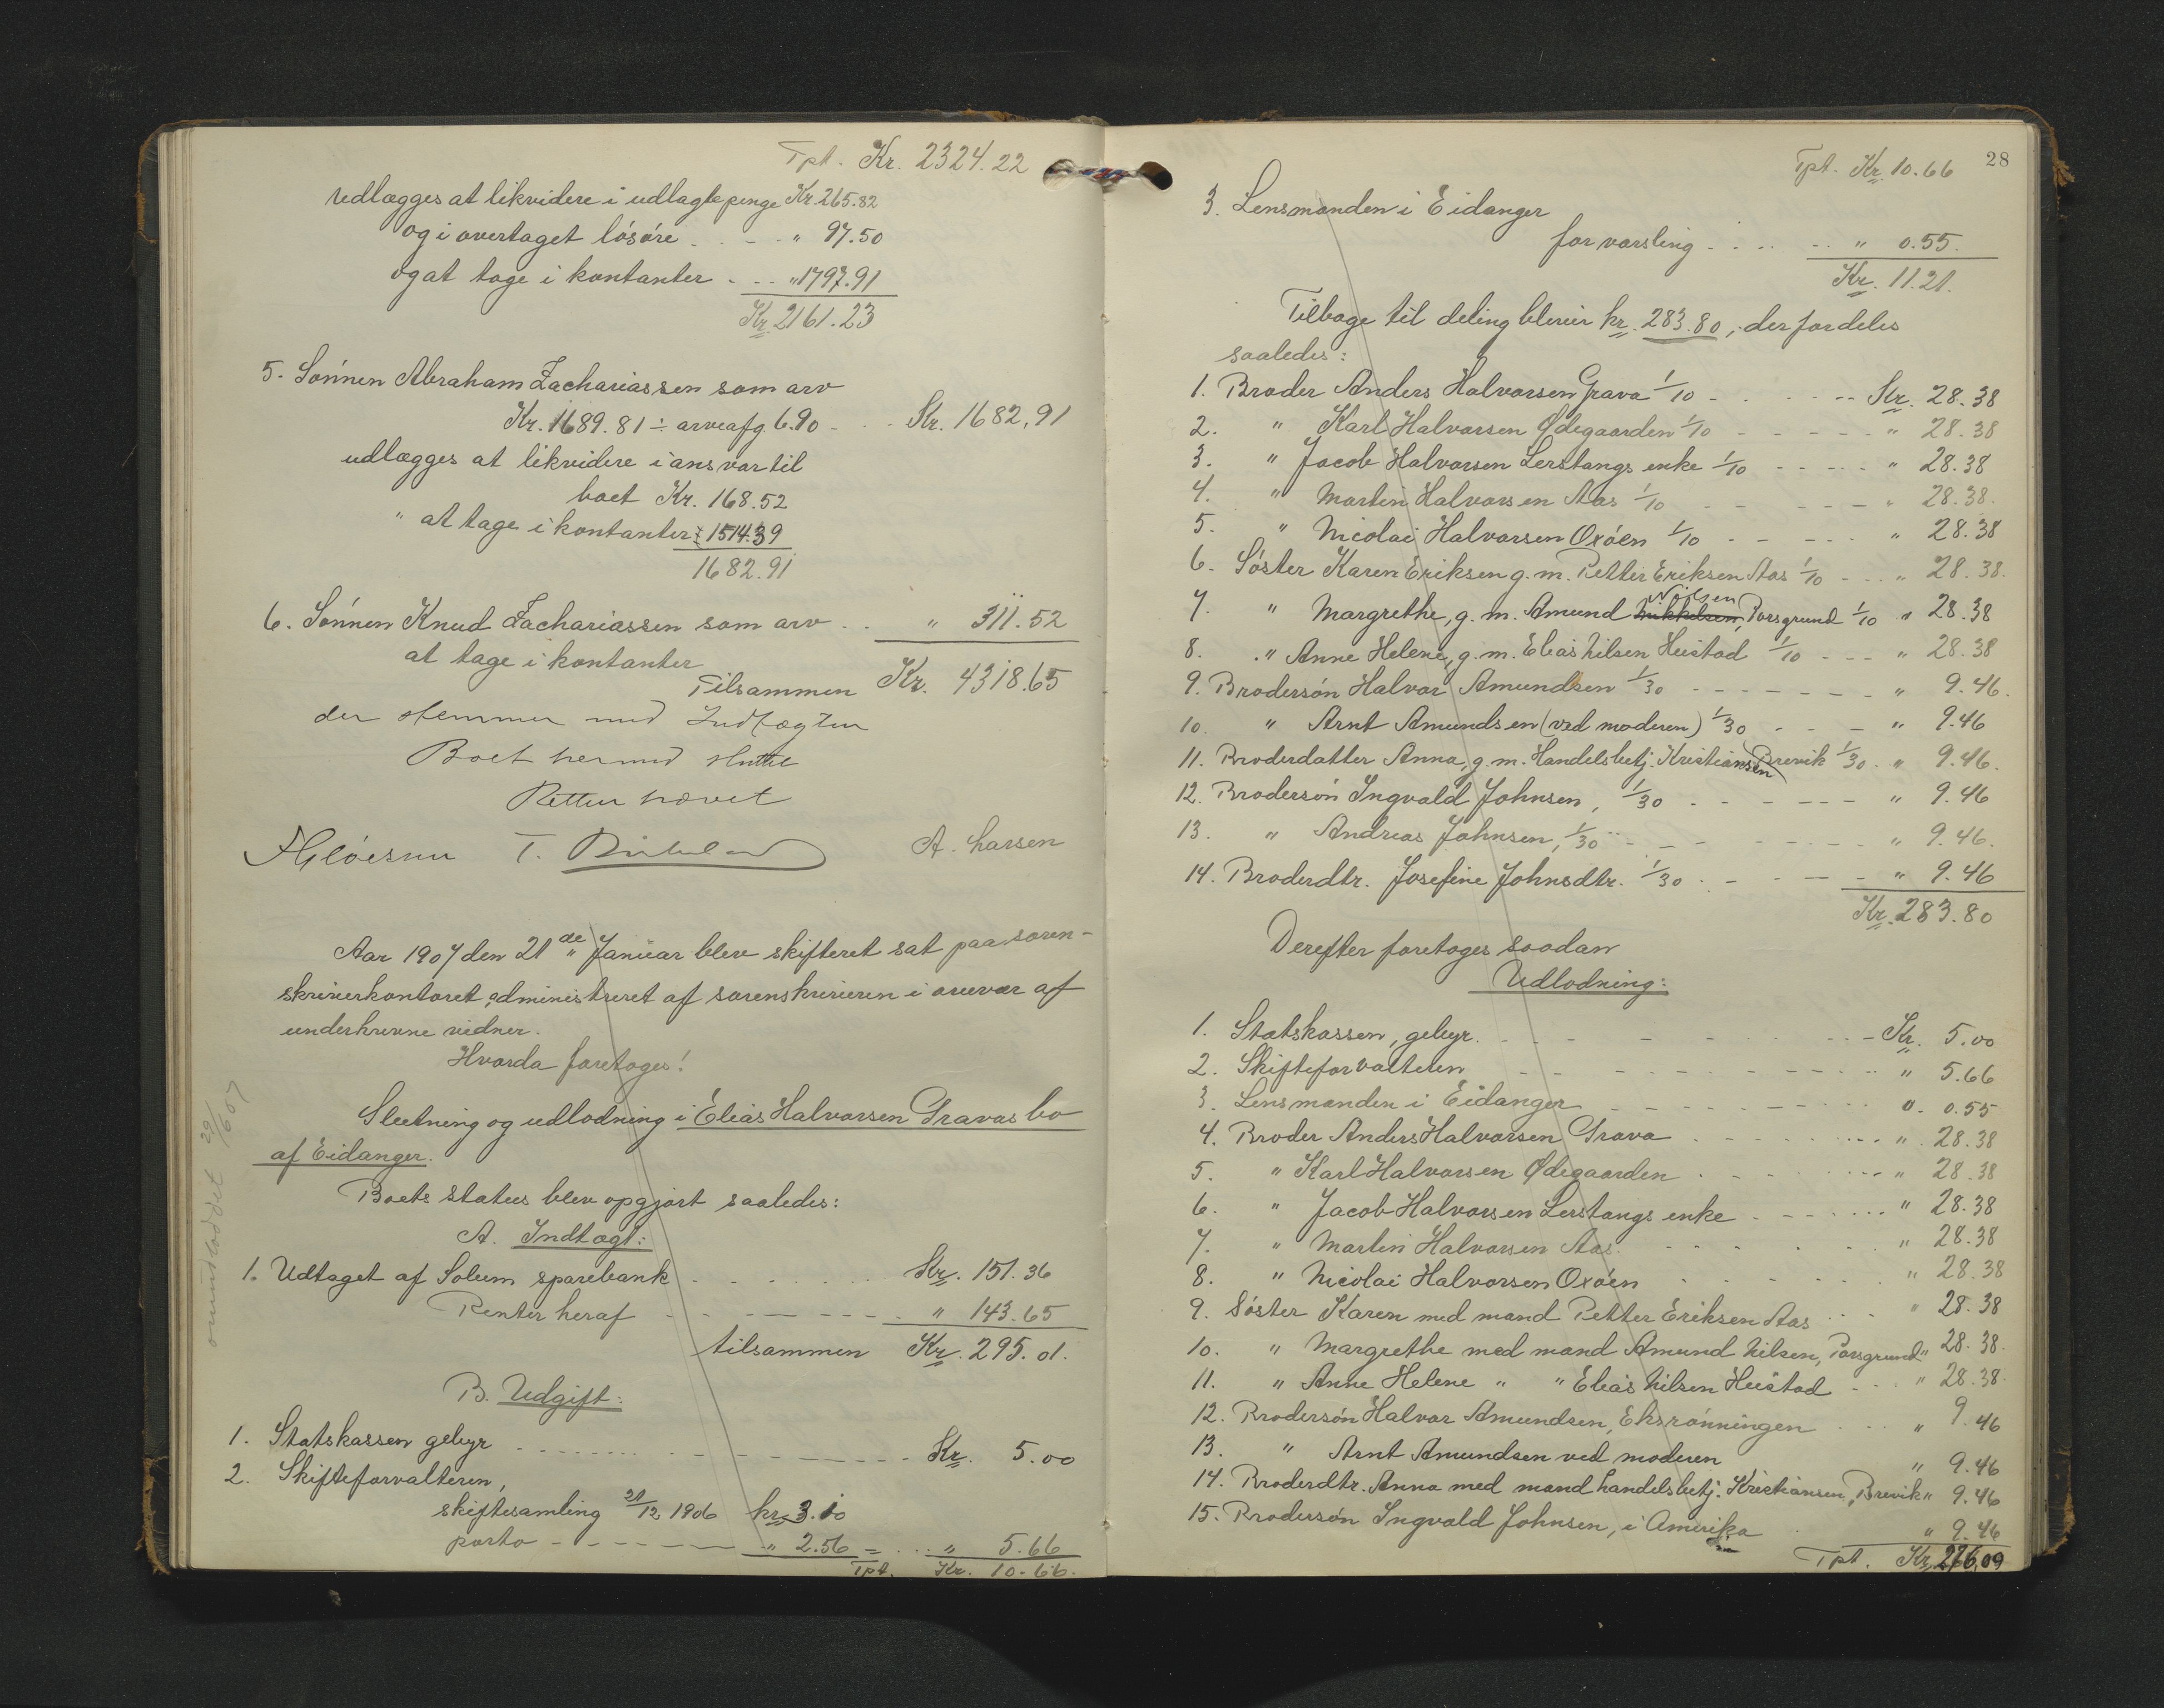 Tpt. Kr. 2324.22
Udlægges at likvidere i udlagte penge Kr. 265.82
og i overtaget løsøre - - - " 97.50
og at tage i kontanter - - - " 1797.91
Kr. 2161.23
5. Sønnen Abraham Zachariassen som arv
Kr. 1689.81 ÷ arveafg. 6.90 - - - Kr. 1682,91
udlægges at likvidere i ansvar til
boet Kr. 168.52
" at tage i kontanter " 1514.39
1682.91
6. Sønnen Knud Zachariassen som arv . . " 311.52
at tage i kontanter
Tilsammen Kr. 4318.65
der stemmer med Indtægten
Boet hermed sluttet
Retten hævet
A. Larsen
Aar 1907 den 21de Januar blev skifteret sat paa soren-
skriverkontoret administreret af sorenskriveren i overvær af
underskrevne vidner.
Hvorda foretoges:
Slutning og udlodning i Elias Halvorsen Gravas bo
af Eidanger.
Boets status blev opgjort saaledes:
A. Indtægt:
1. Udtaget af Solum sparebank - - - - - Kr. 151.36
Renter heraf - - - - - " 143.65
tilsammen Kr. 295.01.
B. Udgift:
1. Statskassen gebyr - - - - - Kr. 5.00
2. Skifteforvalteren,
skiftesamling 21/12 1906 kr. 3.10
porto - - - - - " 2.56 = . . . " 5.66
Tpt. Kr. 10.66.
omudloddet 29/1 07
28
Tpt. Kr. 10.66
3. Lensmanden i Eidanger
for varsling - - - - - " 0.55.
Kr. 11.21.
Tilbage til deling bliver kr. 283.80, der fordeles
saaledes:
1. Broder Anders Halvorsen Grava 1/10 - - - - - Kr. 28.38
2. " Karl Halvorsen Ødegaarden 1/10 - - - - - " 28.38
3. " Jacob Halvorsen Lerstangs enke 1/10 - - - - - " 28.38
4. " Martin Halvorsen Aas 1/10 - - - - - " 28.38.
5. " Nicolai Halvorsen Oxøen 1/10 - - - - - " 28.38
6. Søster Karen Eriksen g. m. Petter Eriksen Aas 1/10 - - - " 28.38.
7. " Margrethe, g. m. Amund Mikkelsen Nilsen, Porsgrund 1/10 " 28.38
8. " Anne Helene, g. m. Elias Nilsen Heistad 1/10 - - - " 28.38
9. Brodersøn Halvor Amundsen 1/30 - - - - - " 9.46.
10. " Arnt Amundsen (ved moderen) 1/30 - - - " 9.46
11. Broderdatter Anna, g. m. Handelsbetj. Kristiansen Brevik 1/30 . " 9.46.
12. Brodersøn Ingvald Johnsen, 1/30 - - - - - " 9.46
13. " Andreas Johnsen, 1/30 - - - - - " 9.46.
14. Broderdtr. Josefine Johnsdtr. 1/30 - - - - - " 9.46
Kr. 283.80
Derefter foretoges saadan
Udlodning:
1. Statskassen, gebyr. - - - - - Kr. 5.00
2. Skifteforvalteren - - - - - " 5.66
3. Lensmanden i Eidanger - - - - - " 0.55
4. Broder Anders Halvorsen Grava - - - - - " 28.38
5. " Karl Halvorsen Ødegaarden - - - - - " 28.38
6. " Jacob Halvorsen Lerstangs enke - - - - - " 28.38
7. " Martin Halvorsen Aas. - - - - - " 28.38
8. " Nicolai Halvorsen Oxøen - - - - - " 28.38
9. Søster Karen med mand Petter Eriksen Aas - - - " 28.38
10. " Margrethe med mand Amund Nilsen, Porsgrund " 28.38.
11. " Anne Helene " " Elias Nilsen Heistad - - - " 28.38.
12. Brodersøn Halvor Amundsen, Eksrønningen - - - " 9.46
13. " Arnt Amundsen ved moderen " 9.46
14. Broderdtr. Anna med mand handelsbetj. Kristiansen, Brevik " 9.46
15. Brodersøn Ingvald Johnsen, i Amerika " 9.46
Tpt. Kr. 276,09